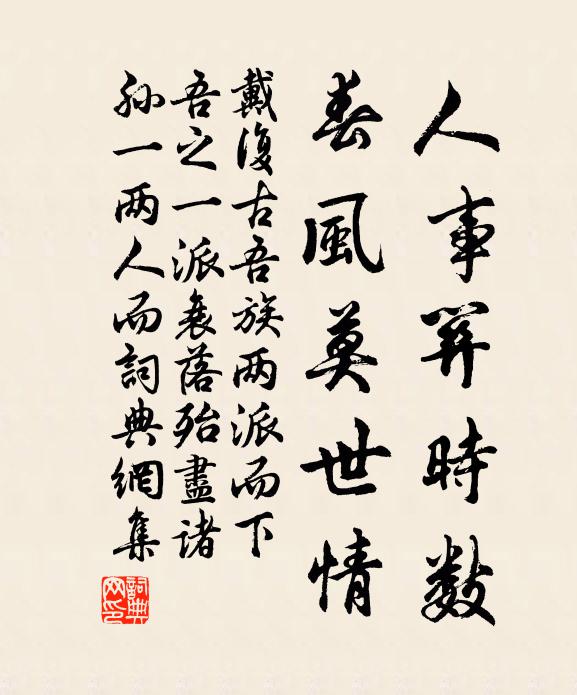 人事時數
春風莫世情
戴復古吾族两派而下
吾之一派衰落殆盡諸
孙一两人而詞典網集
詞典
网印